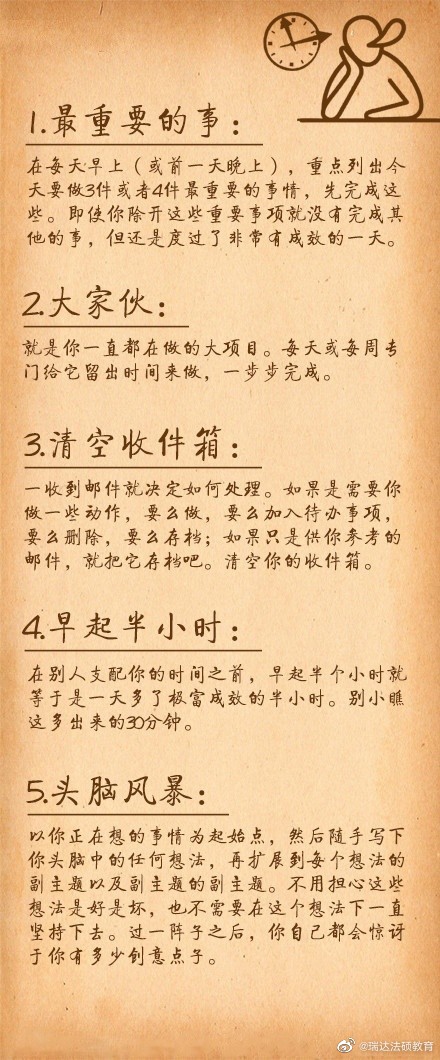 1.最重要的事：
在每天早上（或前一天晚上），重点列出今
天要做3件或者4件最重要的事情，先完成这
些。即使你除开这些重要事项就没有完成其
他的事，但还是度过了非常有成效的一天。
2.大家伙：
就是你一直都在做的大项目。每天或每周专
门给它留出时间来做，一步步完成。
3.清空收件箱：
一收到邮件就决定如何处理。如果是需要你
做一些动作，要么做，要么加入待办事项，
要么删除，要么存档；如果只是供你参考的
邮件，就把它存档吧。清空你的收件箱。
4.早起半小时：
在别人支配你的时间之前，早起半个小时就
等于是一天多了极富成效的半小时。别小瞧
这多出来的30分钟。
5.头脑风暴：
以你正在想的事情为起始点，然后随手写下
你头脑中的任何想法，再扩展到每个想法的
副主题以及副主题的副主题。不用担心这些
想法是好是坏，也不需要在这个想法下一直
坚持下去。过一阵子之后，你自己都会惊讶
于你有多少创意点子。
@瑞达法硕教育